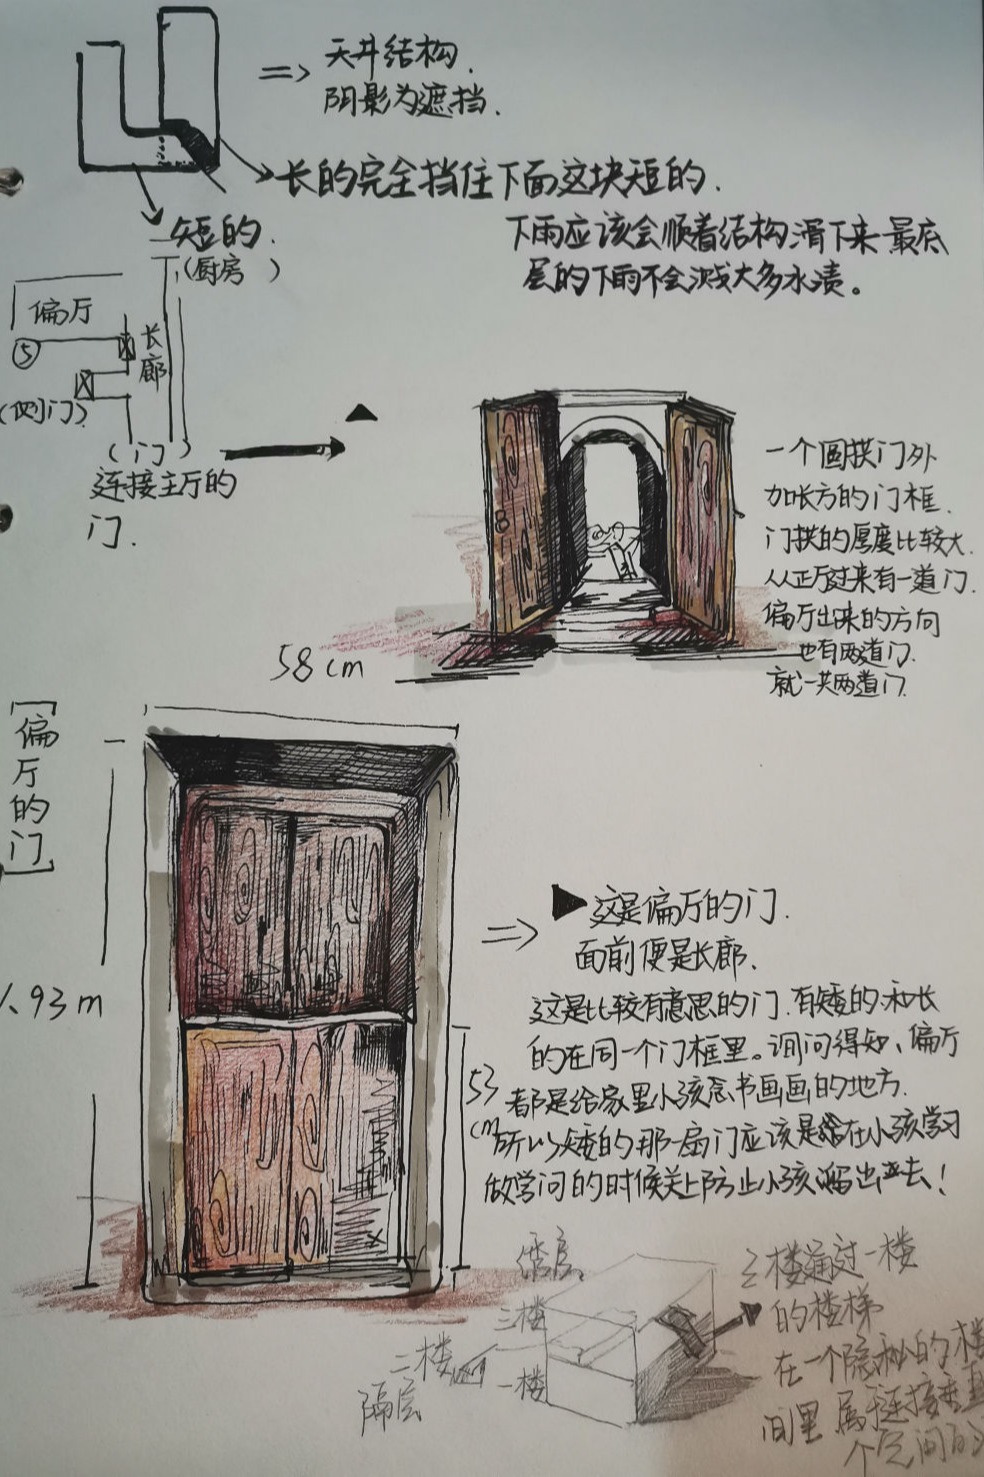 天井结构.
阴影为遮挡.
长的完全挡住下面这块短的.
短的.
(厨房)
下雨应该会顺着结构滑下来 最底
层的下雨不会溅太多水渍。
偏厅
⑤
长
廊
(侧门)
(门)
连接主厅的
门.
一个圆拱门外
加长方的门框.
门拱的厚度比较大.
从正厅过来有一道门.
偏厅出来的方向
也有两道门.
就一共两道门.
58cm
[偏
厅
的
门]
1.93m
这是偏厅的门.
面前便是长廊.
这是比较有意思的门.有矮的和长
的在同一个门框里。询问得知、偏厅
都是给家里小孩念书画画的地方.
所以矮的那一扇门应该是在小孩学习
做学问的时候关上防止小孩溜出去!
53
cm
三楼
二楼
隔层
一楼
三楼通过一楼
的楼梯
在一个隐秘的楼
间里